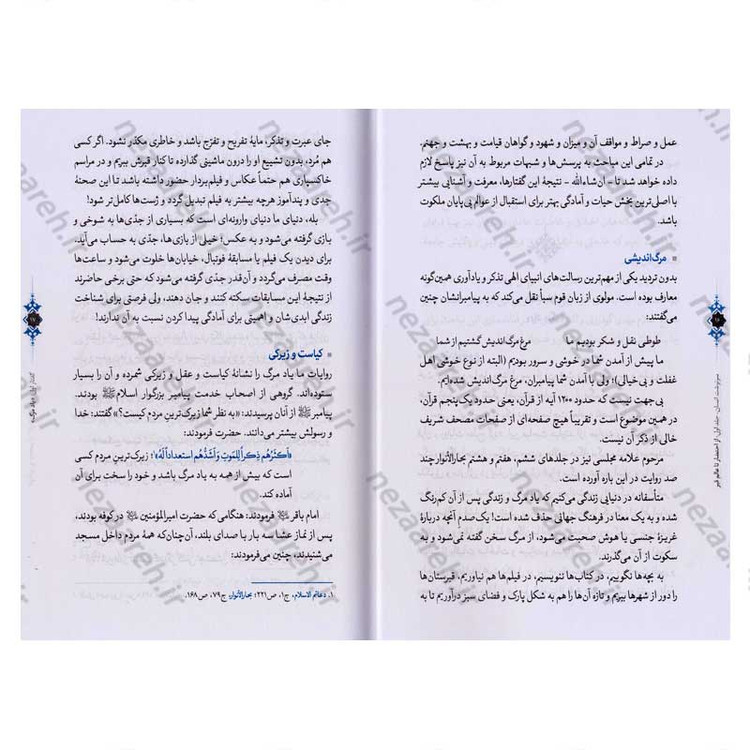 عمل و صراط و مواقف آن و میزان و شهود و گواهان قیامت و بهشت و جهنم.
در تمامی این مباحث به پرسش‌ها و شبهات مربوط به آن نیز پاسخ لازم
داده خواهد شد تا - ان‌شاءالله - نتیجهٔ این گفتارها، معرفت و آشنایی بیشتر
با اصلی‌ترین بخش حیات و آمادگی بهتر برای استقبال از عوالم بی‌پایان ملکوت
باشد.
مرگ‌اندیشی
بدون تردید یکی از مهم‌ترین رسالت‌های انبیای الهی تذکر و یادآوری همین‌گونه
معارف بوده است. مولوی از زبان قوم سبأ نقل می‌کند که به پیامبرانشان چنین
می‌گفتند:
طوطی نقل و شکر بودیم ما مرغ مرگ‌اندیش گشتیم از شما
ما پیش از آمدن شما در خوشی و سرور بودیم (البته از نوع خوشی اهل
غفلت و بی‌خیالی)؛ ولی با آمدن شما پیامبران، مرغ مرگ‌اندیش شده‌ایم.
بی‌جهت نیست که حدود ۱۲۰۰ آیه از قرآن، یعنی حدود یک‌پنجم قرآن،
در همین موضوع است و تقریباً هیچ صفحه‌ای از صفحات مصحف شریف
خالی از ذکر آن نیست.
مرحوم علامه مجلسی نیز در جلدهای ششم، هفتم و هشتم بحارالأنوار چند
صد روایت در این باره آورده است.
متأسفانه در دنیایی زندگی می‌کنیم که یاد مرگ و زندگی پس از آن کم‌رنگ
شده و به یک معنا در فرهنگ جهانی حذف شده است! یک‌صدم آنچه دربارهٔ
غریزهٔ جنسی یا هوش صحبت می‌شود، از مرگ سخن گفته نمی‌شود و به
سکوت از آن می‌گذرند.
به بچه‌ها نگوییم، در کتاب‌ها ننویسیم، در فیلم‌ها هم نیاوریم، قبرستان‌ها
را دور از شهرها ببریم و تازه آن‌ها را هم به شکل پارک و فضای سبز درآوریم تا به
سرنوشت انسان - جلد اول: از احتضار تا عالم قبر
۱۶
جای عبرت و تذکر، مایهٔ تفریح و تفرّج باشد و خاطری مکدّر نشود. اگر کسی
هم مُرد، بدون تشییع او را درون ماشینی گذارده تا کنار قبرش ببریم و در مراسم
خاکسپاری هم حتماً عکاس و فیلم‌بردار حضور داشته باشد تا این صحنهٔ
جدی و پندآموز هرچه بیشتر به فیلم تبدیل گردد و ژست‌ها کامل‌تر شود!
بله، دنیای ما دنیای وارونه‌ای است که بسیاری از جدّی‌ها به شوخی و
بازی گرفته می‌شود و به عکس؛ خیلی از بازی‌ها، جدّی به حساب می‌آید.
برای دیدن یک فیلم یا مسابقهٔ فوتبال، خیابان‌ها خلوت می‌شود و ساعت‌ها
وقت مصرف می‌گردد و آن‌قدر جدّی گرفته می‌شود که حتی برخی حاضرند
از نتیجهٔ این مسابقات سکته کنند و جان دهند، ولی فرصتی برای شناخت
زندگی ابدی‌شان و اهمیتی برای آمادگی پیدا کردن نسبت به آن ندارند!
کیاست و زیرکی
روایات ما یاد مرگ را نشانهٔ کیاست و عقل و زیرکی شمرده و آن را بسیار
ستوده‌اند. گروهی از اصحاب خدمت پیامبر بزرگوار اسلام ﷺ بودند.
پیامبر ﷺ از آنان پرسیدند: «به نظر شما زیرک‌ترین مردم کیست؟» گفتند: خدا
و رسولش بیشتر می‌دانند. حضرت فرمودند:
«أکثَرُهُم ذِکراً لِلمَوتِ وَ أشَدُّهُم استعداداً لَهُ»؛ زیرک‌ترین مردم کسی
است که بیش از همه به یاد مرگ باشد و خود را سخت برای آن
آماده کند.
امام باقر فرمودند: هنگامی که حضرت امیرالمؤمنین در کوفه بودند،
پس از نماز عشا سه بار با صدای بلند، آن‌چنان‌که همهٔ مردم داخل مسجد
می‌شنیدند، چنین می‌فرمودند:
۱. دعائم الاسلام، ج۱، ص۲۲۱؛ بحارالأنوار، ج۷۹، ص۱۶۸.
گفتار اول: «یاد مرگ»
۱۷
nezaareh.ir